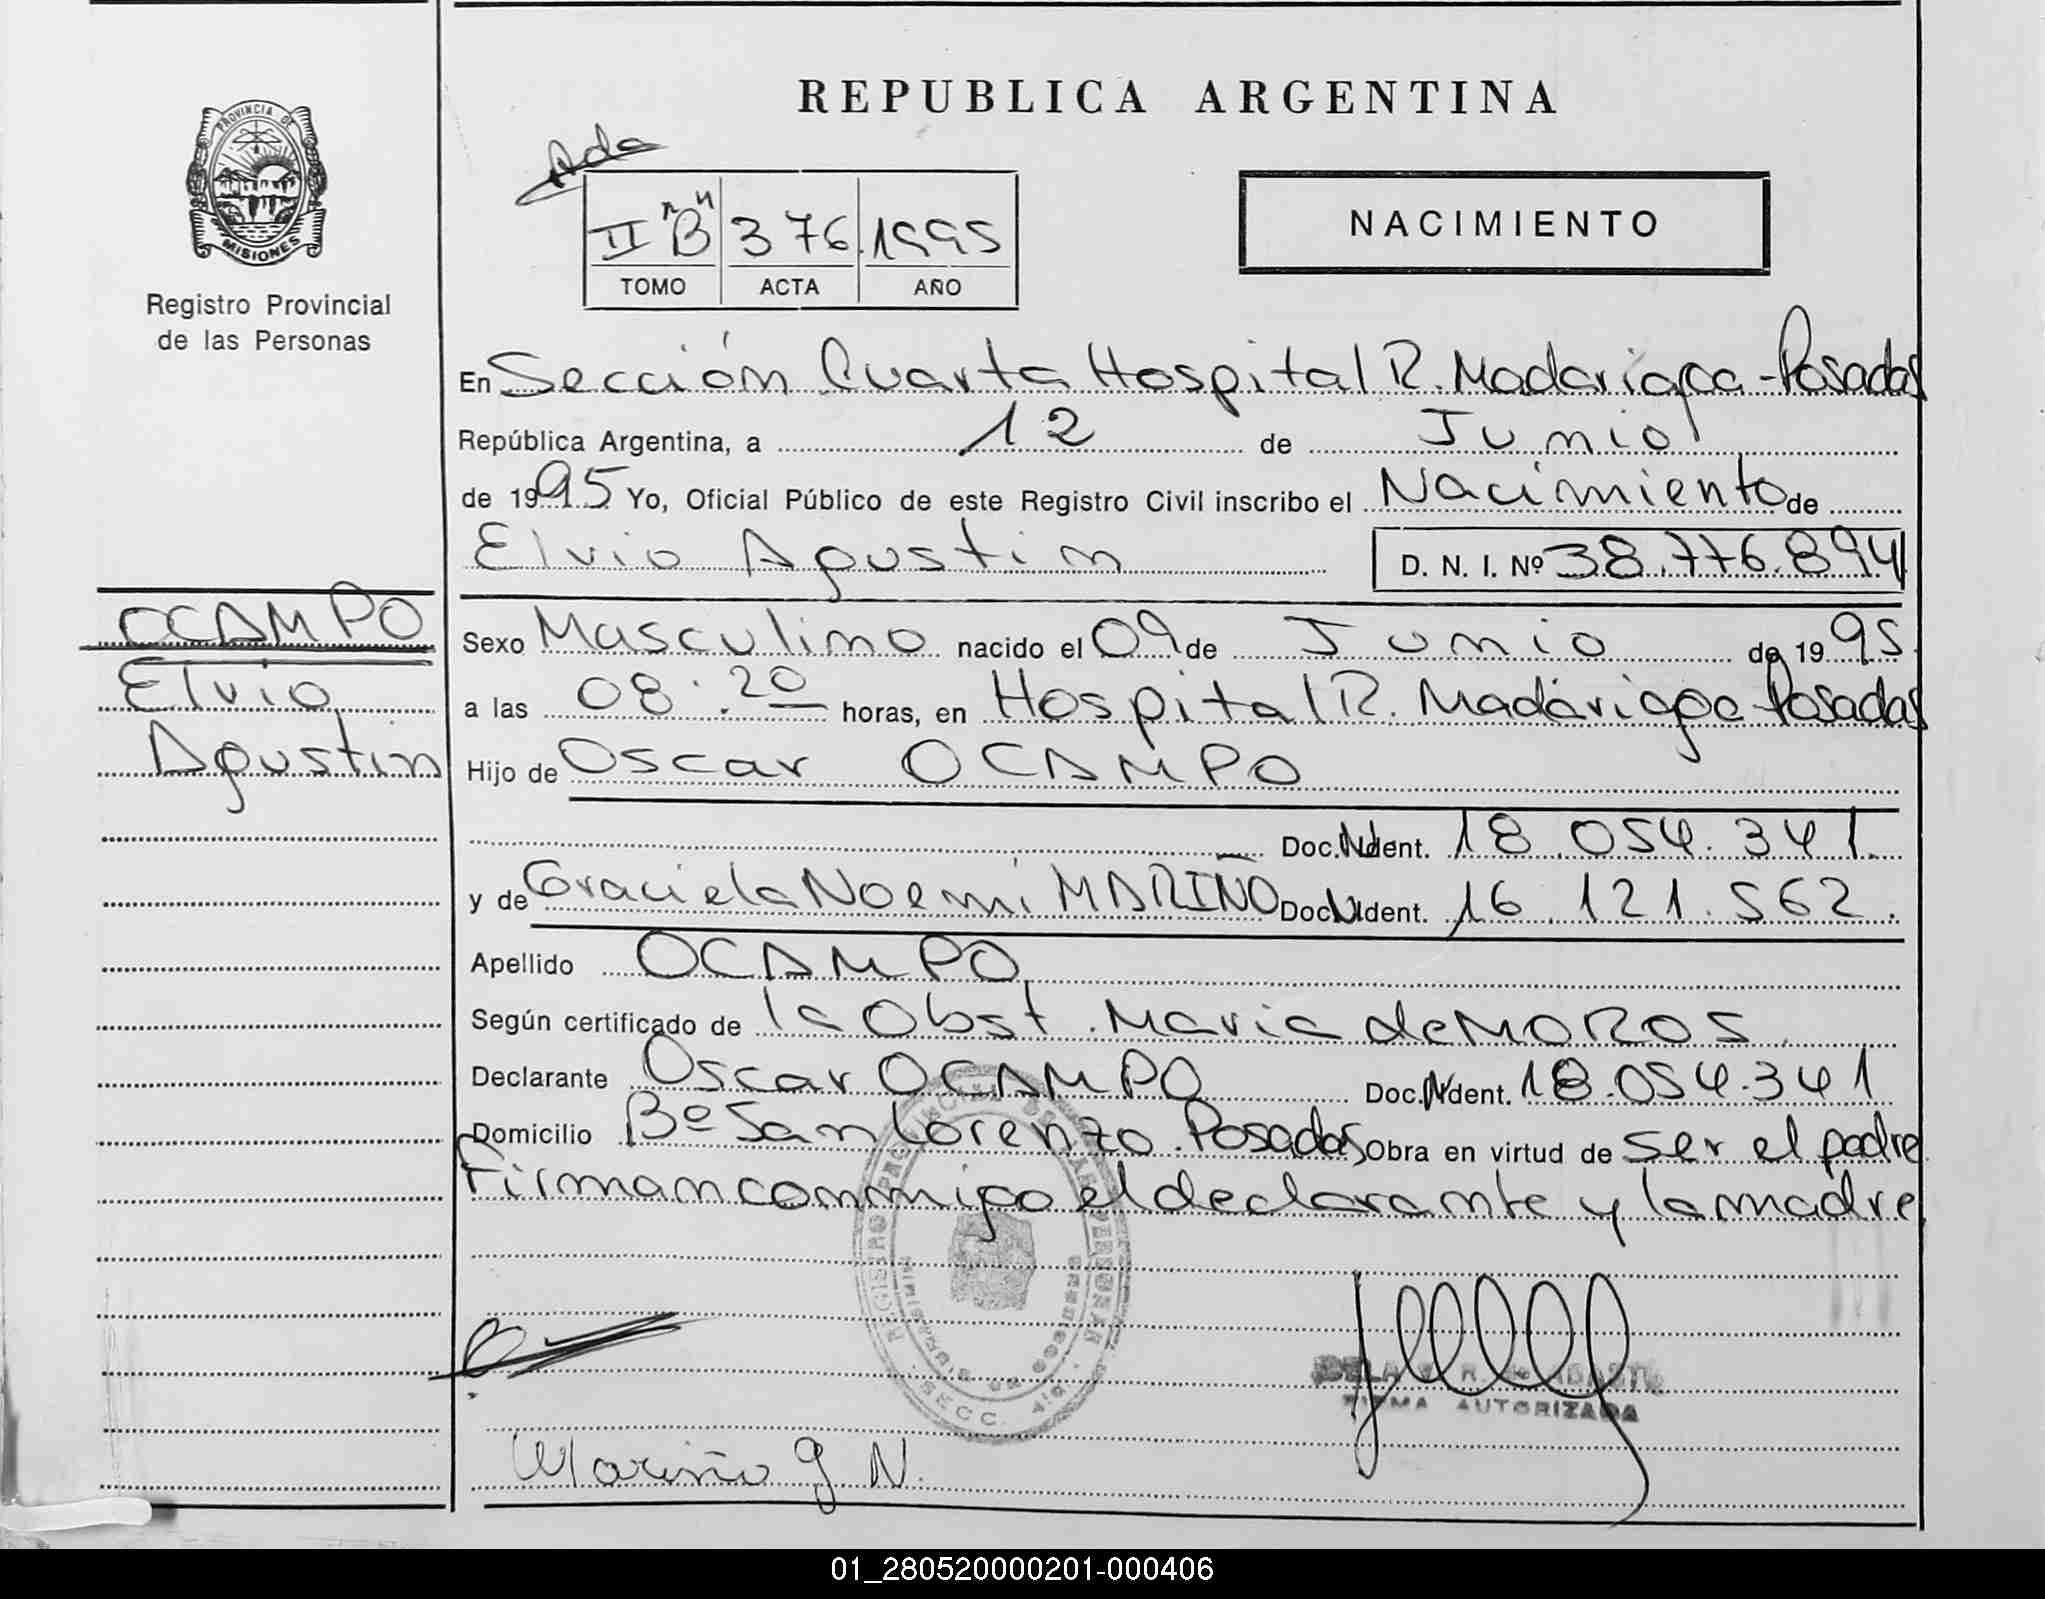 REPUBLICA ARGENTINA
PROVINCIA DE
MISIONES
Registro Provincial
de las Personas
Ada
II "B" 376 1995
TOMO ACTA AÑO
NACIMIENTO
En Sección Cuarta Hospital R. Madariaga - Posadas
República Argentina, a 12 de Junio
de 1995 Yo, Oficial Público de este Registro Civil inscribo el Nacimiento de
Elvio Agustin D. N. I. Nº 38.776.894
OCAMPO
Elvio
Agustin
Sexo Masculino nacido el 09 de Junio de 1995
a las 08:20 horas, en Hospital R. Madariaga Posadas
Hijo de Oscar OCAMPO
Doc. Ident. 18.054.341
y de Graciela Noemi MARIÑO Doc. Ident. 16.121.562.
Apellido OCAMPO
Según certificado de la Obst. Maria de MOROS
Declarante Oscar OCAMPO Doc. Ident. 18.054.341
Domicilio Bº San Lorenzo. Posadas Obra en virtud de ser el padre
Firman conmigo el declarante y la madre
REGISTRO PROVINCIAL DE LAS PERSONAS
SECC.
FIRMA AUTORIZADA
Mariño G N.
01_280520000201-000406